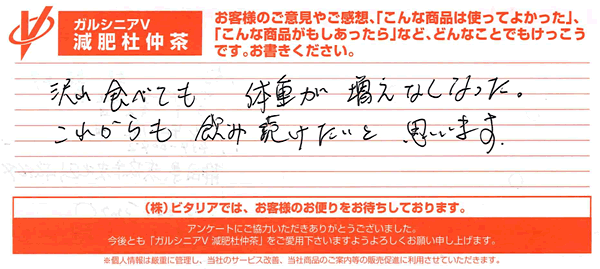 ガルシニアV
減肥杜仲茶
お客様のご意見やご感想、「こんな商品は使ってよかった」、
「こんな商品がもしあったら」など、どんなことでもけっこう
です。お書きください。
沢山食べても 体重が 増えなくなった。
これからも 飲み続けたいと 思います.
(株)ビタリアでは、お客様のお便りをお待ちしております。
アンケートにご協力いただきありがとうございました。
今後とも「ガルシニアV 減肥杜仲茶」をご愛用下さいますようよろしくお願い申し上げます。
※個人情報は厳重に管理し、当社のサービス改善、当社商品のご案内等の販売促進に利用させていただきます。